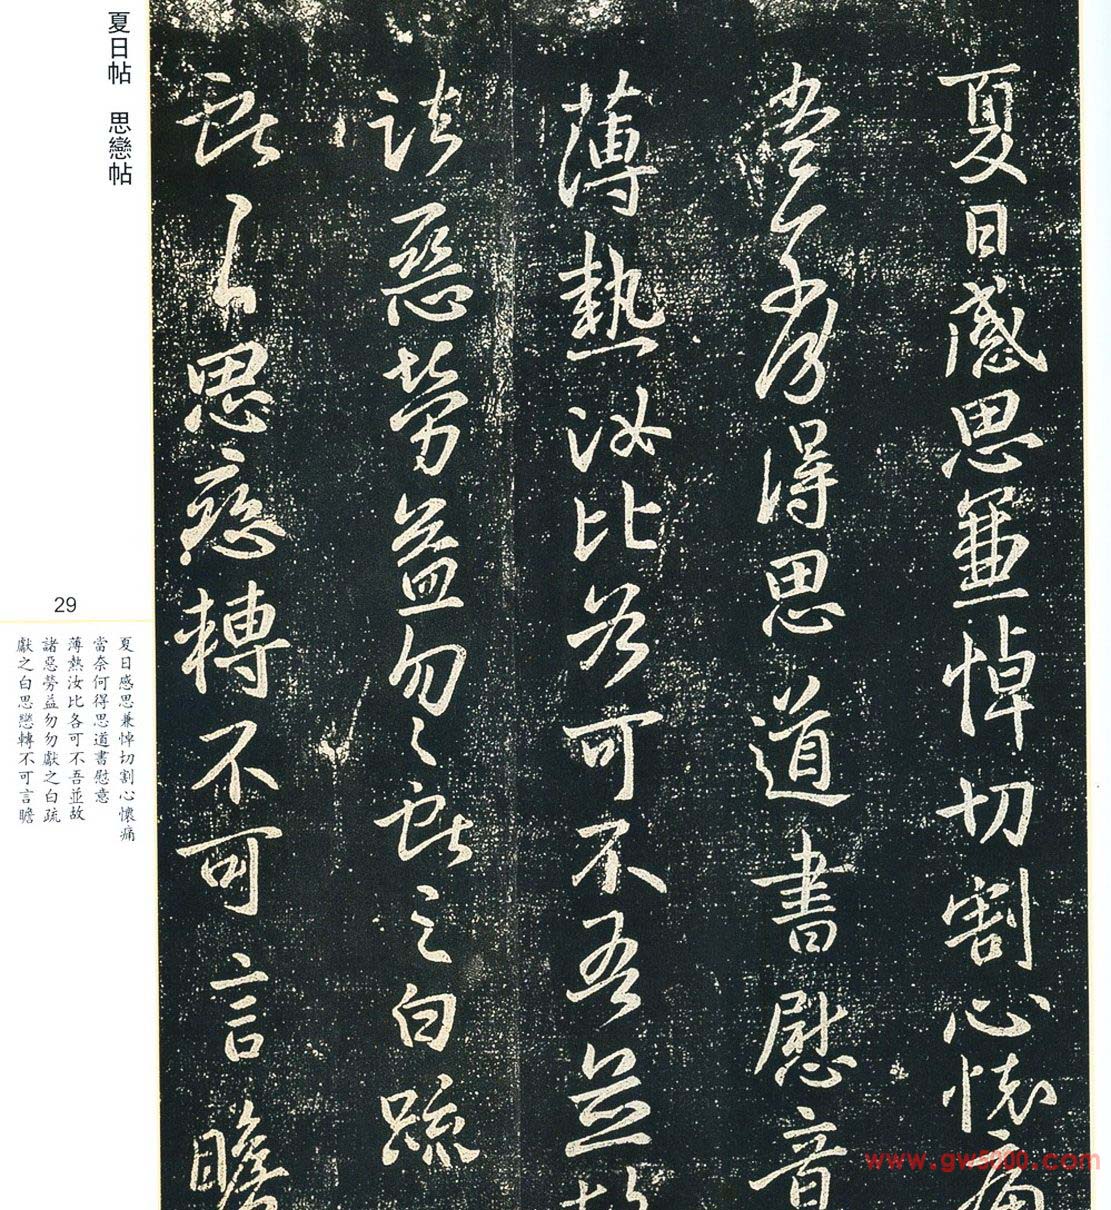 夏日感思兼悼切割心懷痛
當奈何奈何得思道書慰意
薄熱汝比各可不吾並故
諸惡勞益勿勿獻之白疏
獻之白思戀轉不可言瞻
夏日帖 思戀帖
29
夏日感思兼悼切割心懷痛
當奈何得思道書慰意
薄熱汝比各可不吾並故
諸惡勞益勿勿獻之白疏
獻之白思戀轉不可言瞻
www.gw5000.com